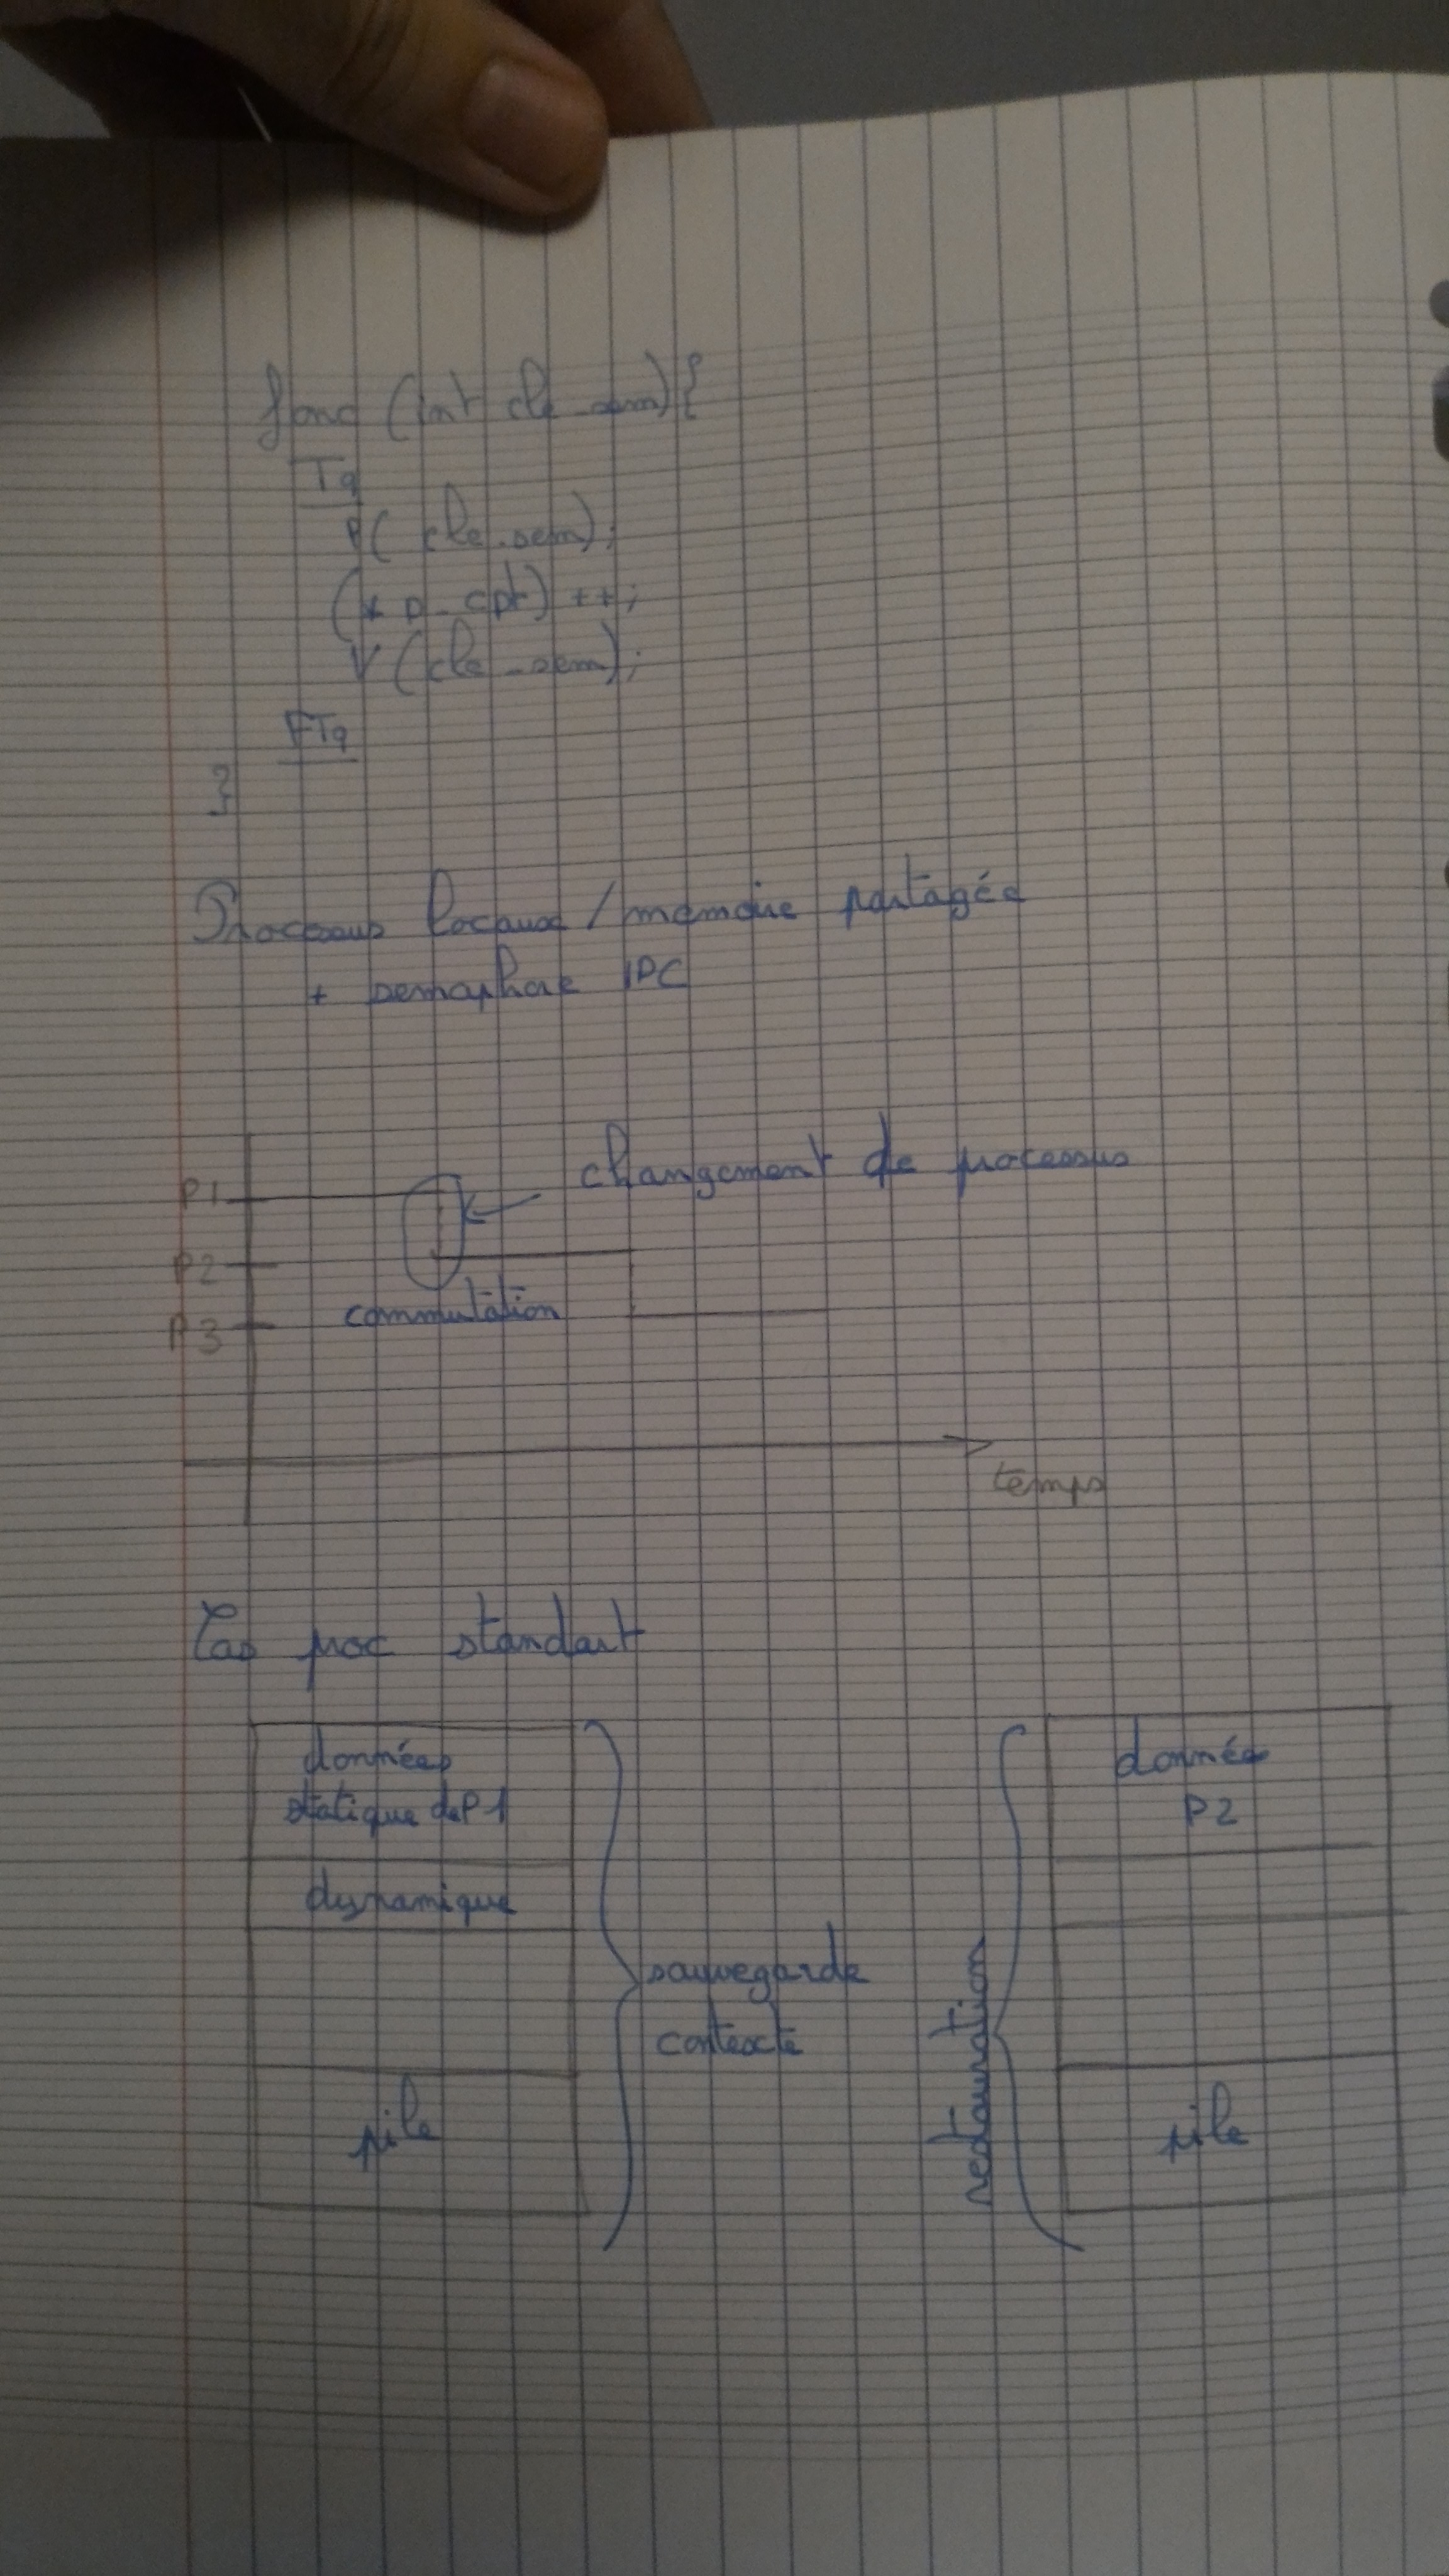 fonc (int cle_sem) {
Tq
P( cle_sem);
(* p_cpt) ++;
V (cle_sem);
FTq
}
Processus locaux / mémoire partagée
+ semaphore IPC
changement de processus
P1
P2
commutation
P3
temps
Cas proc standart
données
statique de P1
dynamique
pile
sauvegarde
contexte
restauration
donnée
P2
pile